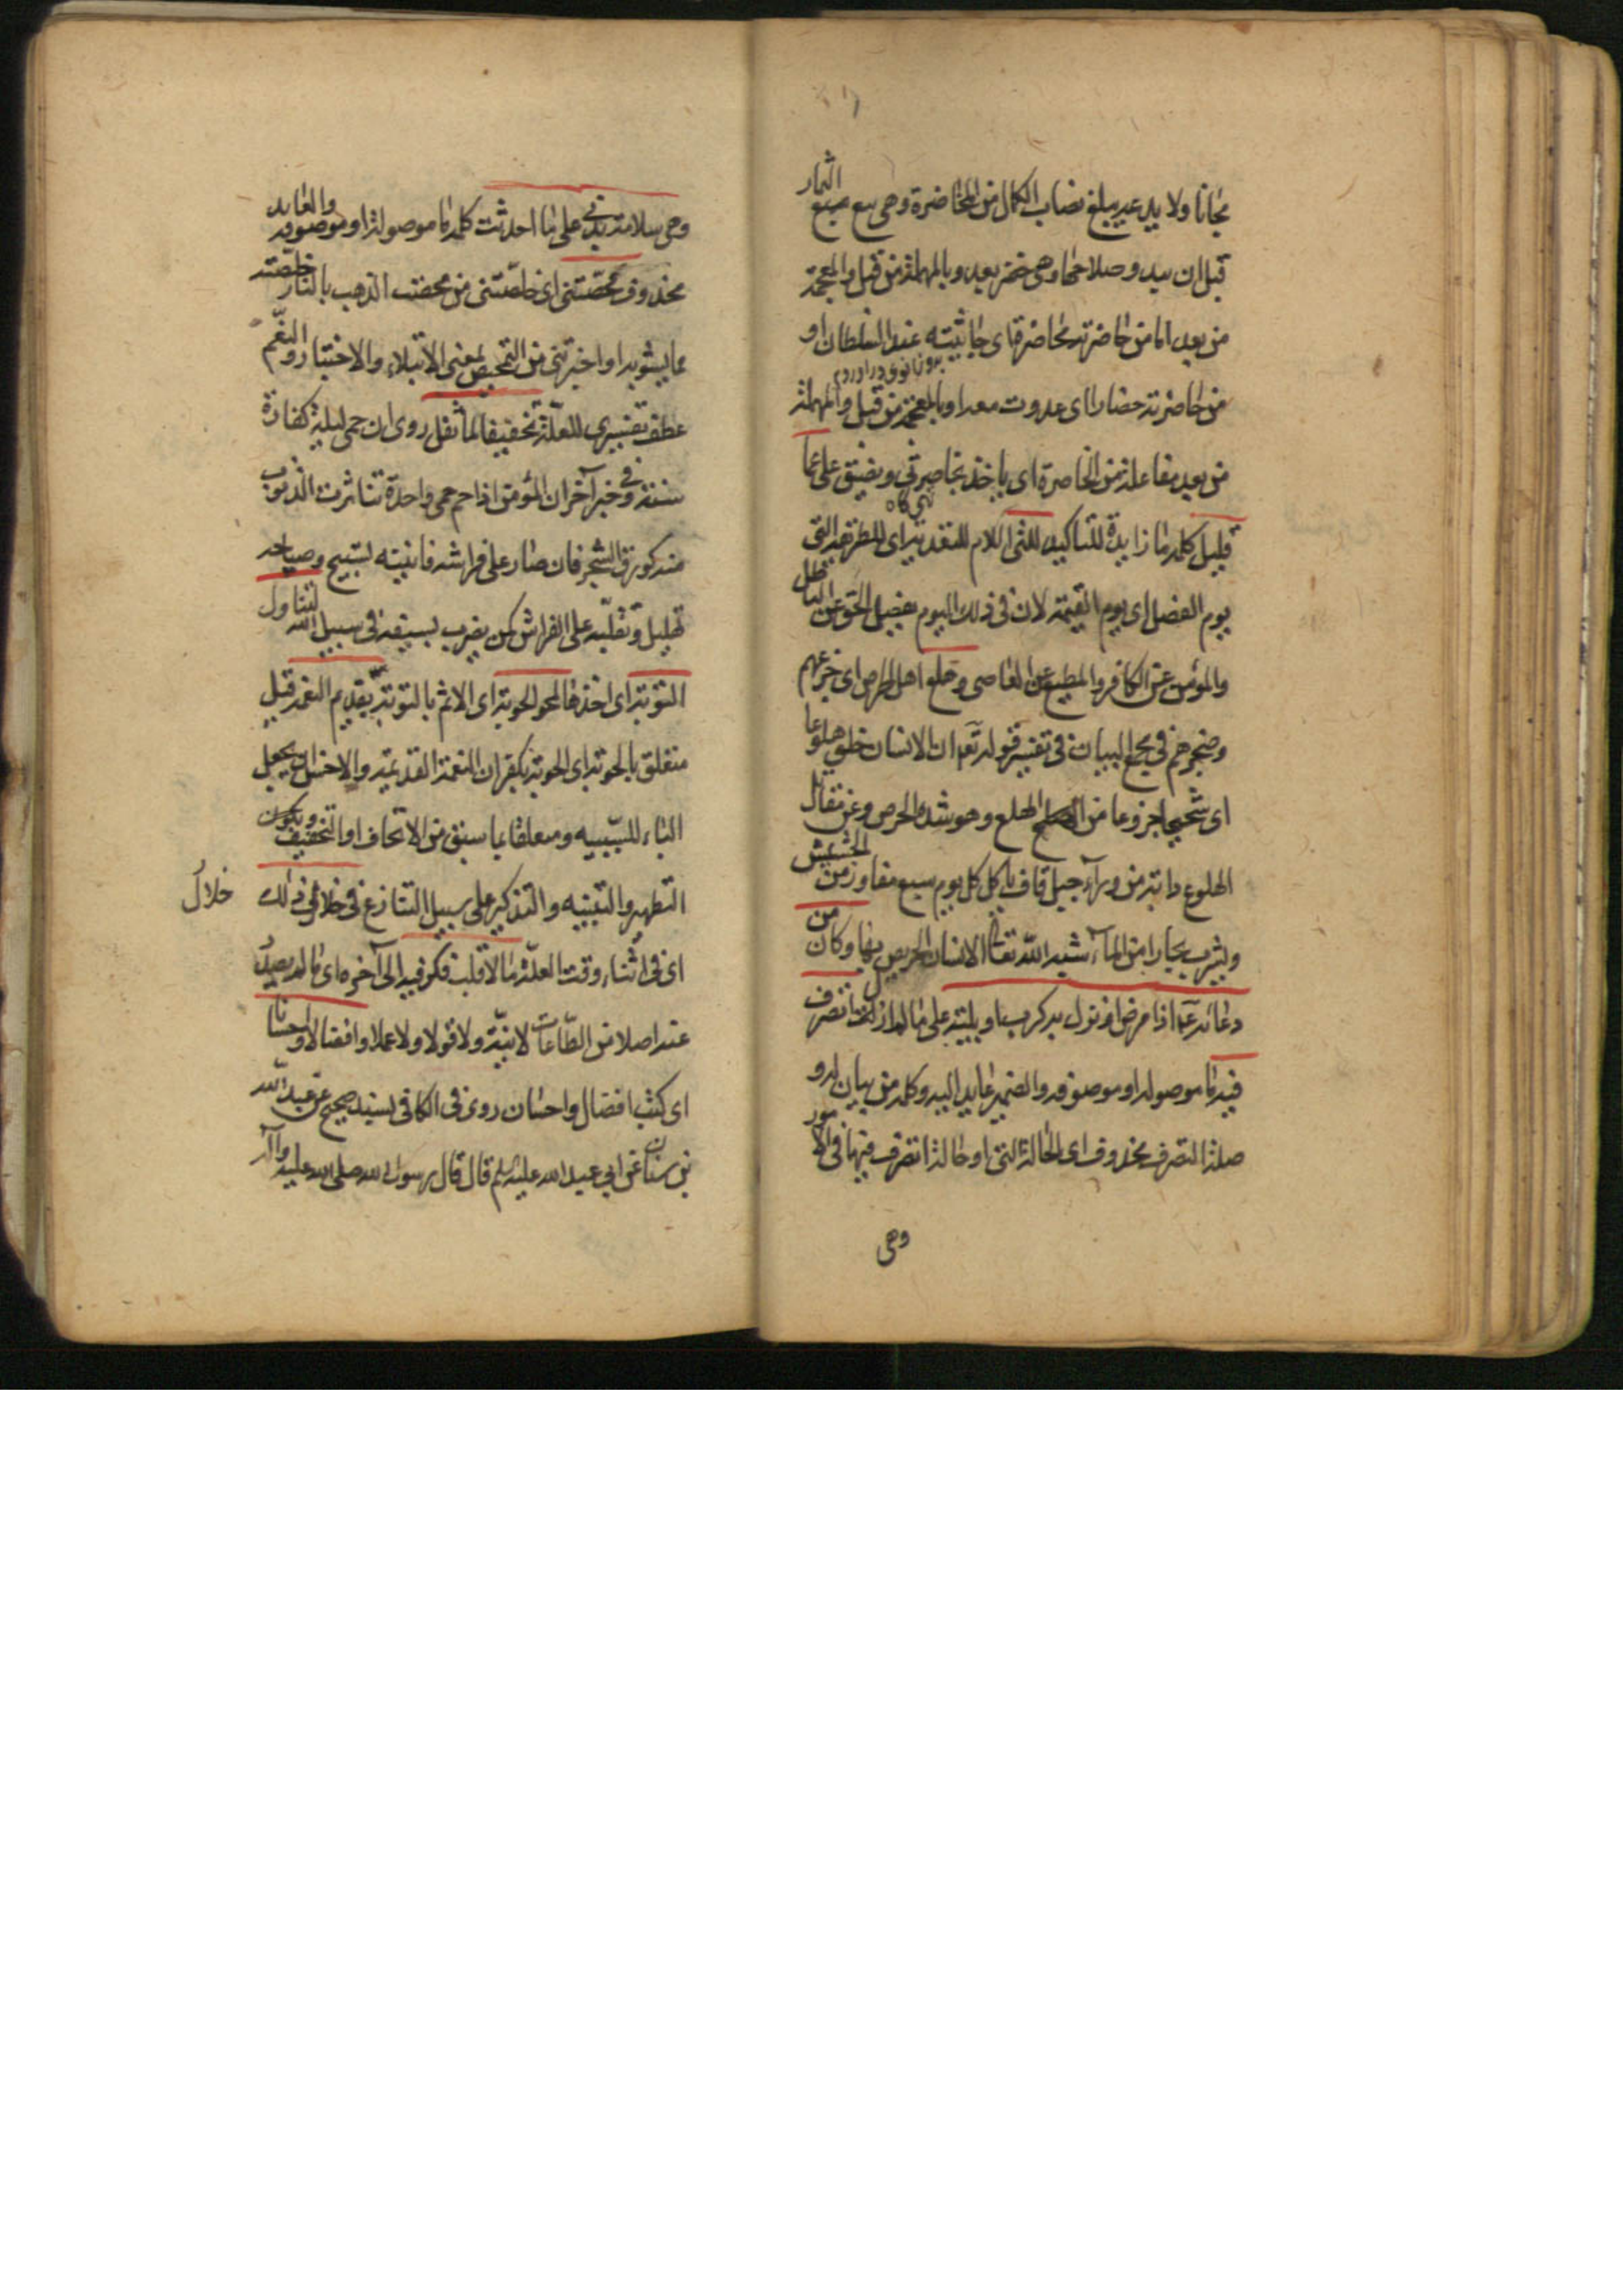 مجانا ولا يد عديبلغ نصاب الكمال من المخاضرة وهى بيع الثمار
قبل ان يبدو صلاحها وهى خضر بعد وبالمهملة من قبل والمعجمة
من بعد اما من حاضرته محاضرة اى جاثيته عند السلطان او
بروزانوى درا وردم
من حاضرته حضارا اى عدوت معه او بالمعجمة من قبل والمهملة
من بعد مفاعلة من الخاصرة اى ياخذ بخاصرتى ويضيق على عما
تهى كاه
قليل كلمة ما زايدة للتاكيد اللام للتقدير اى
يوم الفصل اى يوم القيمة لان فى ذلك اليوم يفصل الحق عن الباطل
والمؤمن عن الكافر والمطيع عن العاصى وهلع اهل الحرص اى جزعهم
وضجرهم فى مجمع البيان فى تفسير قوله تعه ان الانسان خلق هلوعا
اى شحيحا جزوعا من الهلع وهو شدة الحرص وعن مقاتل
الهلوع دابة من ورآء جبل قاف ياكل كل يوم سبع مفاوز من الحشيش
ويشرب بحارا من المآء شبه الله تعالى الانسان الحريص بها وكان من
دعائه ع اذا مرض او نزل به كرب او بلية على ما لم ازل اتصرف
فيه ما موصولة او موصوفة والضمير عايد اليه وكلمة من بيان له و
صلة التصرف محذوف اى الحالة التى او حالة اتصرف فيها فى الامور
وهى
وهى سلامة بدنى على ما احدثت كلمة ما موصولة او موصوفة والعايد
محذوف محصتنى اى خلصتنى من محصت الذهب بالنار خلصته
مما يشوبه او اختبرتنى من التمحيص بمعنى الابتلاء والاختبار و النعم
عطف تفسيرى للعلة تخفيفا لما ثقل روى ان حمى ليلة كفارة
سنة وفى خبر آخر ان المؤمن اذا حم حمى واحدة تناثرت الذنوب
منه كورق الشجر فان صار على فراشه فانينه تسبيح وصياحه
تهليل وتقلبه على الفراش كمن يضرب بسيفه فى سبيل الله لتناول
التوبة اى اخذها لمحو الحوبة اى الاثم بالتوبة بقديم النعمة قيل
متعلق بالحوبة اى الحوبة بكفران النعمة القديمة والاحسن ان يجعل
الباء للسببيه ومتعلقا بما سبق من الاتحاف او التخفيف ويكون
التطهير والتنبيه والتذكير على سبيل التنازع وفى خلال ذلك
خلال
اى فى اثناء وقت العلة ما لا قلب فكر فيه الى آخره اى ما لم يصدر
عنه اصلا من الطاعات لا نية ولا قولا ولا عملا وافضالا واحسانا
اى كتب افضال واحسان روى فى الكافى بسند صحيح عن عبد الله
بن سنان عن ابى عبد الله عليه السلم قال قال رسول الله صلى الله عليه وآله